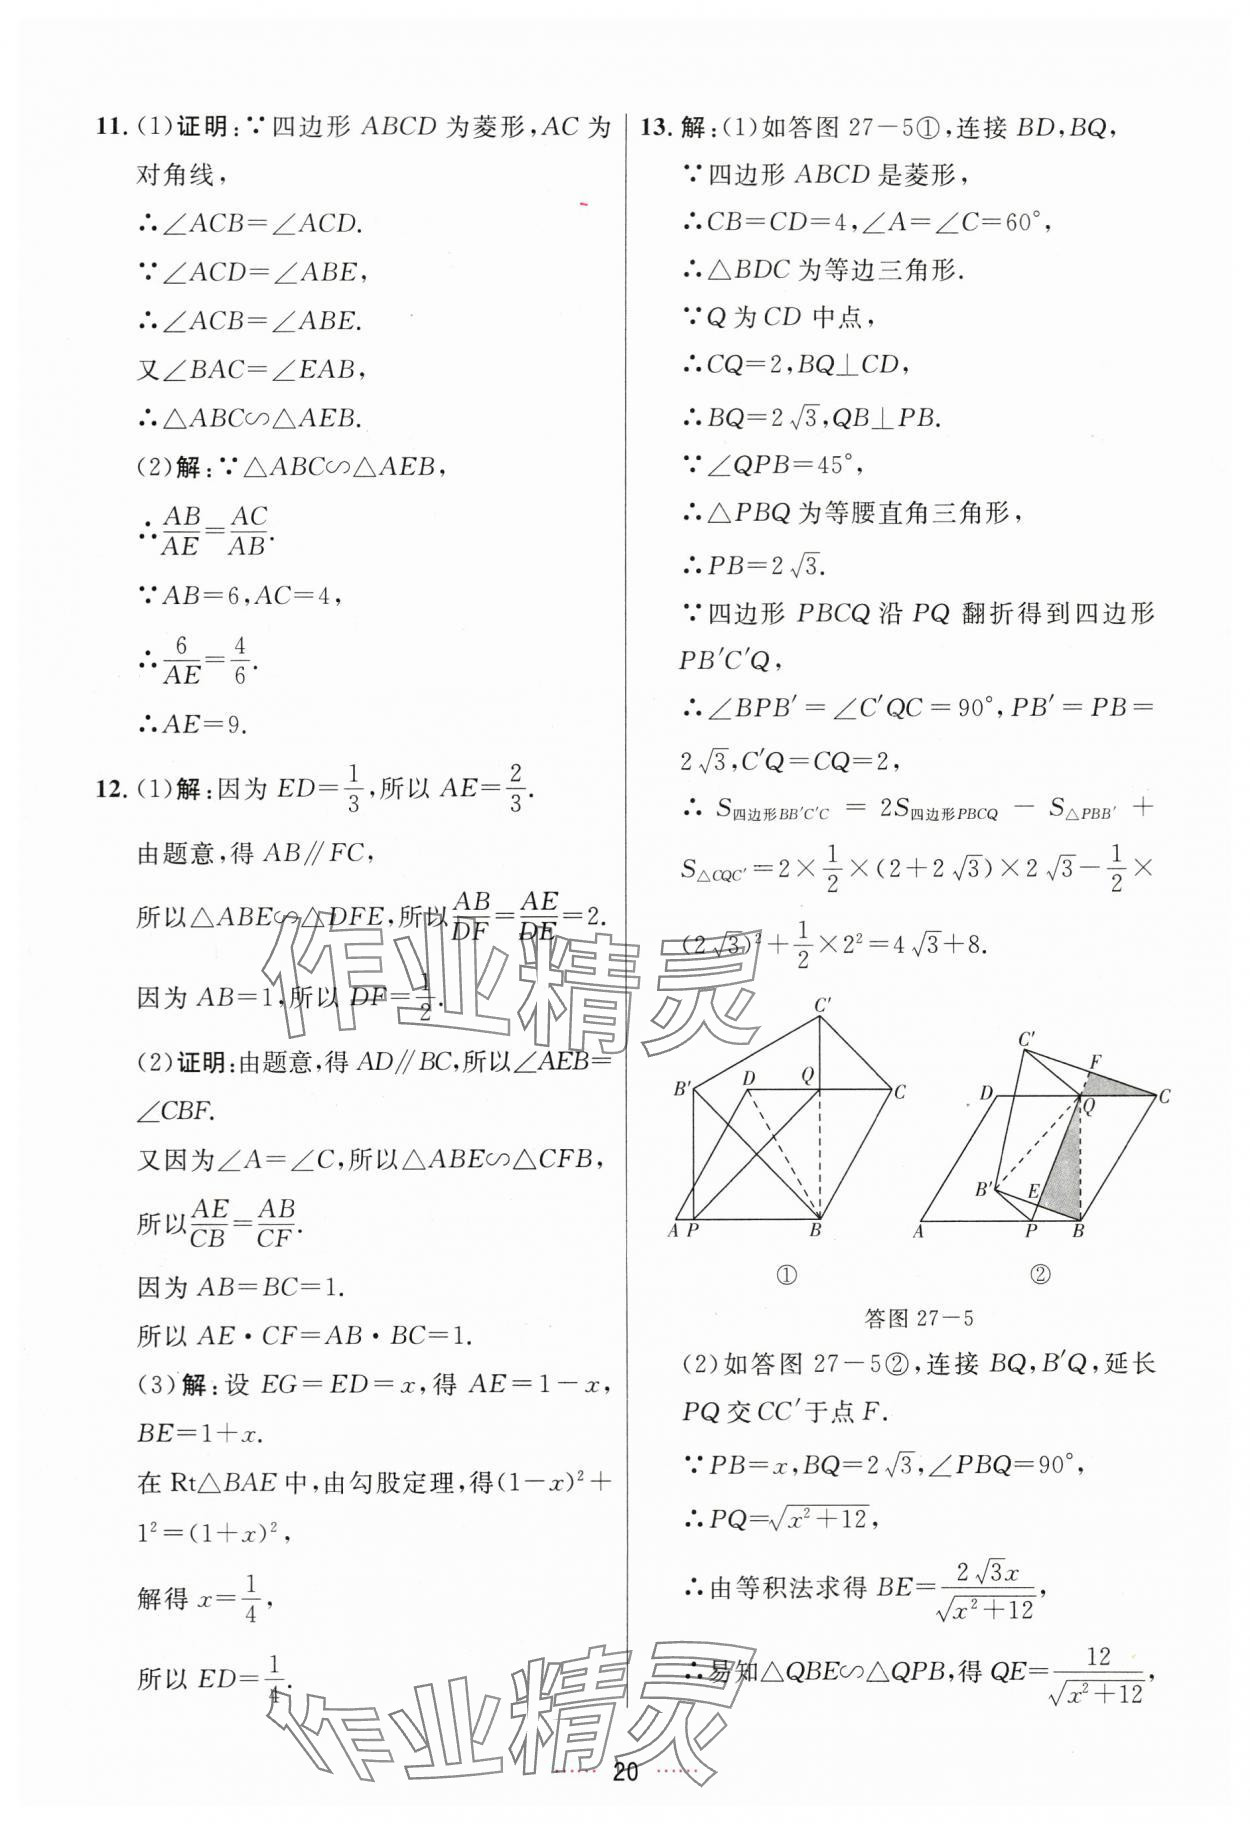 11. (1)证明:∵四边形 ABCD 为菱形,AC 为
对角线,
∴∠ACB=∠ACD.
∵∠ACD=∠ABE,
∴∠ACB=∠ABE.
又∠BAC=∠EAB,
∴△ABC∽△AEB.
(2)解:∵△ABC∽△AEB,
∴AB/AE=AC/AB.
∵AB=6,AC=4,
∴6/AE=4/6.
∴AE=9.
12. (1)解:因为 ED=1/3,所以 AE=2/3.
由题意,得 AB∥FC,
所以△ABE∽△DFE,所以AB/DF=AE/DE=2.
因为 AB=1,所以 DF=1/2.
(2)证明:由题意,得 AD∥BC,所以∠AEB=
∠CBF.
又因为∠A=∠C,所以△ABE∽△CFB,
所以AE/CB=AB/CF.
因为 AB=BC=1.
所以 AE·CF=AB·BC=1.
(3)解:设 EG=ED=x,得 AE=1-x,
BE=1+x.
在 Rt△BAE 中,由勾股定理,得(1-x)²+
1²=(1+x)²,
解得 x=1/4,
所以 ED=1/4.
13. 解:(1)如答图 27-5①,连接 BD,BQ,
∵四边形 ABCD 是菱形,
∴CB=CD=4,∠A=∠C=60°,
∴△BDC 为等边三角形.
∵Q 为 CD 中点,
∴CQ=2,BQ⊥CD,
∴BQ=2√3,QB⊥PB.
∵∠QPB=45°,
∴△PBQ 为等腰直角三角形,
∴PB=2√3.
∵四边形 PBCQ 沿 PQ 翻折得到四边形
PB′C′Q,
∴∠BPB′=∠C′QC=90°,PB′=PB=
2√3,C′Q=CQ=2,
∴ S四边形BB′C′C = 2S四边形PBCQ - S△PBB′ +
S△CQC′=2×1/2×(2+2√3)×2√3-1/2×
(2√3)²+1/2×2²=4√3+8.
C′
B′ D Q C
A P B
①
C′ F
D Q C
B′ E
A P B
②
答图 27-5
(2)如答图 27-5②,连接 BQ,B′Q,延长
PQ 交 CC′于点 F.
∵PB=x,BQ=2√3,∠PBQ=90°,
∴PQ=√(x²+12),
∴由等积法求得 BE=2√3x/√(x²+12),
∴易知△QBE∽△QPB,得 QE=12/√(x²+12),
作业精灵
作业精灵
20